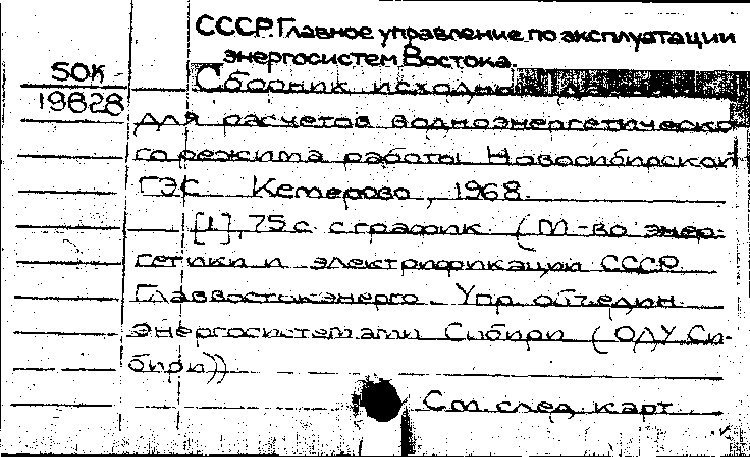 СССР. Главное управление по эксплуатации
энергосистем Востока.
50К
19628
Сборник исходных данных
для расчетов водноэнергетическо-
го режима работы Новосибирской
ГЭС. Кемерово, 1968.
[1], 75 с. с график. (М-во энер-
гетики и электрификации СССР.
Главвостокэнерго. Упр. объедин.
энергосистемами Сибири (ОДУ Си-
бири))
См. след. карт.